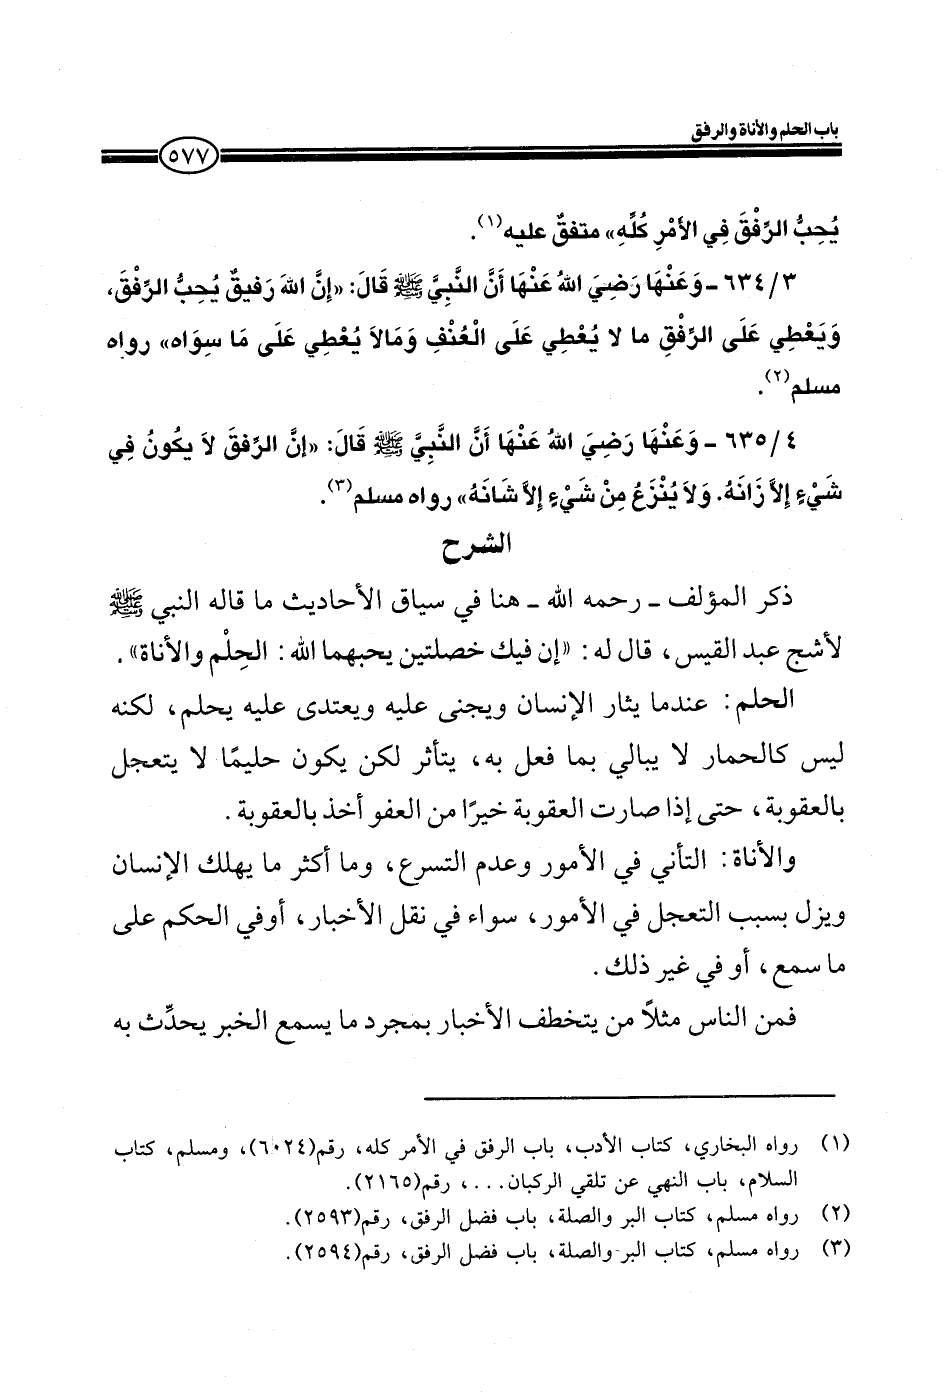 باب الحلم والأناة والرفق
٥٧٧
يُحِبُّ الرِّفْقَ فِي الأَمْرِ كُلِّهِ» متفقٌ عليه(١).
٦٣٤/٣ ـ وَعَنْهَا رَضِيَ اللهُ عَنْهَا أَنَّ النَّبِيَّ ﷺ قَالَ: «إِنَّ اللهَ رَفيقٌ يُحِبُّ الرِّفْقَ،
وَيَعْطِي عَلَى الرِّفْقِ ما لا يُعْطِي عَلَى الْعُنْفِ وَمَالاَ يُعْطِي عَلَى مَا سِوَاه» رواه
مسلم(٢).
٦٣٥/٤ ـ وَعَنْهَا رَضِيَ اللهُ عَنْهَا أَنَّ النَّبِيَّ ﷺ قَالَ: «إنَّ الرِّفقَ لاَ يكُونُ فِي
شَيْءٍ إِلاَّ زَانَهُ. وَلاَ يُنْزَعُ مِنْ شَيْءٍ إِلاَّ شَانَهُ» رواه مسلم(٣).
الشرح
ذكر المؤلف ـ رحمه الله ـ هنا في سياق الأحاديث ما قاله النبي ﷺ
لأشج عبد القيس، قال له: «إن فيك خصلتين يحبهما الله: الحِلْم والأناة».
الحلم: عندما يثار الإنسان ويجنى عليه ويعتدى عليه يحلم، لكنه
ليس كالحمار لا يبالي بما فعل به، يتأثر لكن يكون حليمًا لا يتعجل
بالعقوبة، حتى إذا صارت العقوبة خيرًا من العفو أخذ بالعقوبة.
والأناة: التأني في الأمور وعدم التسرع، وما أكثر ما يهلك الإنسان
ويزل بسبب التعجل في الأمور، سواء في نقل الأخبار، أوفي الحكم على
ما سمع، أو في غير ذلك.
فمن الناس مثلاً من يتخطف الأخبار بمجرد ما يسمع الخبر يحدِّث به
(١) رواه البخاري، كتاب الأدب، باب الرفق في الأمر كله، رقم(٦٠٢٤)، ومسلم، كتاب
السلام، باب النهي عن تلقي الركبان...، رقم(٢١٦٥).
(٢) رواه مسلم، كتاب البر والصلة، باب فضل الرفق، رقم(٢٥٩٣).
(٣) رواه مسلم، كتاب البر والصلة، باب فضل الرفق، رقم(٢٥٩٤).